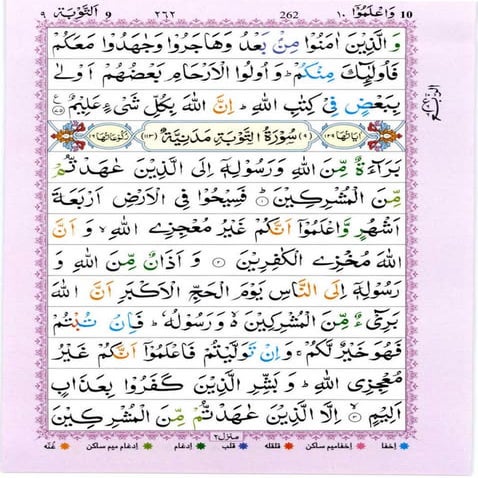 وَاعْلَمُوْٓا ١٠ 10 262 ٢٦٢ اَلتَّوْبَة ٩ 9
وَالَّذِيْنَ اٰمَنُوْا مِنْۢ بَعْدُ وَهَاجَرُوْا وَجٰهَدُوْا مَعَكُمْ
فَاُولٰٓئِكَ مِنْكُمْ ؕ وَاُولُوا الْاَرْحَامِ بَعْضُهُمْ اَوْلٰى
بِبَعْضٍ فِىْ كِتٰبِ اللّٰهِ ؕ اِنَّ اللّٰهَ بِكُلِّ شَىْءٍ عَلِيْمٌ
اٰيَاتُهَا ١٢٩ (٩) سُوْرَةُ التَّوْبَةِ مَدَنِيَّةٌ (١١٣) رُكُوْعَاتُهَا ١٦
بَرَآءَةٌ مِّنَ اللّٰهِ وَرَسُوْلِهٖۤ اِلَى الَّذِيْنَ عٰهَدْتُّمْ
مِّنَ الْمُشْرِكِيْنَ ؕ ١ فَسِيْحُوْا فِى الْاَرْضِ اَرْبَعَةَ
اَشْهُرٍ وَّاعْلَمُوْۤا اَنَّكُمْ غَيْرُ مُعْجِزِى اللّٰهِ ۙ وَ اَنَّ
اللّٰهَ مُخْزِى الْكٰفِرِيْنَ ٢ وَ اَذَانٌ مِّنَ اللّٰهِ وَ
رَسُوْلِهٖۤ اِلَى النَّاسِ يَوْمَ الْحَجِّ الْاَكْبَرِ اَنَّ اللّٰهَ
بَرِىْٓءٌ مِّنَ الْمُشْرِكِيْنَ ۙ وَ رَسُوْلُهٗ ؕ فَاِنْ تُبْتُمْ
فَهُوَ خَيْرٌ لَّكُمْ ۚ وَاِنْ تَوَلَّيْتُمْ فَاعْلَمُوْۤا اَنَّكُمْ غَيْرُ
مُعْجِزِى اللّٰهِ ؕ وَ بَشِّرِ الَّذِيْنَ كَفَرُوْا بِعَذَابٍ
اَلِيْمٍ ۙ ٣ اِلَّا الَّذِيْنَ عٰهَدْتُّمْ مِّنَ الْمُشْرِكِيْنَ
منزل ٢
اخفا اخفا میم ساکن قلقله قلب ادغام ادغام میم ساکن غنّه